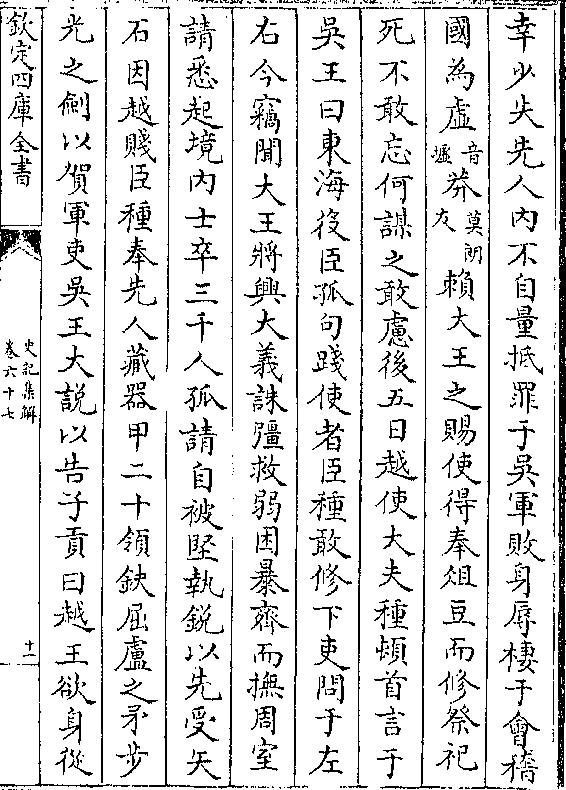 幸少失先人内不自量抵罪于吳軍敗身辱棲于會稽
國為虛音墟莽莫朗反賴大王之賜使得奉俎豆而修祭祀
死不敢忘何謀之敢慮後五日越使大夫種頓首言于
吳王曰東海役臣孤句踐使者臣種敢修下吏問于左
右今竊聞大王將興大義誅彊救弱困暴齊而撫周室
請悉起境内士卒三千人孤請自被堅執銳以先受矢
石因越賤臣種奉先人藏器甲二十領鈇屈盧之矛步
光之劍以賀軍吏吳王大說以告子貢曰越王欲身從
欽定四庫全書
史記集解
卷六十七
十一